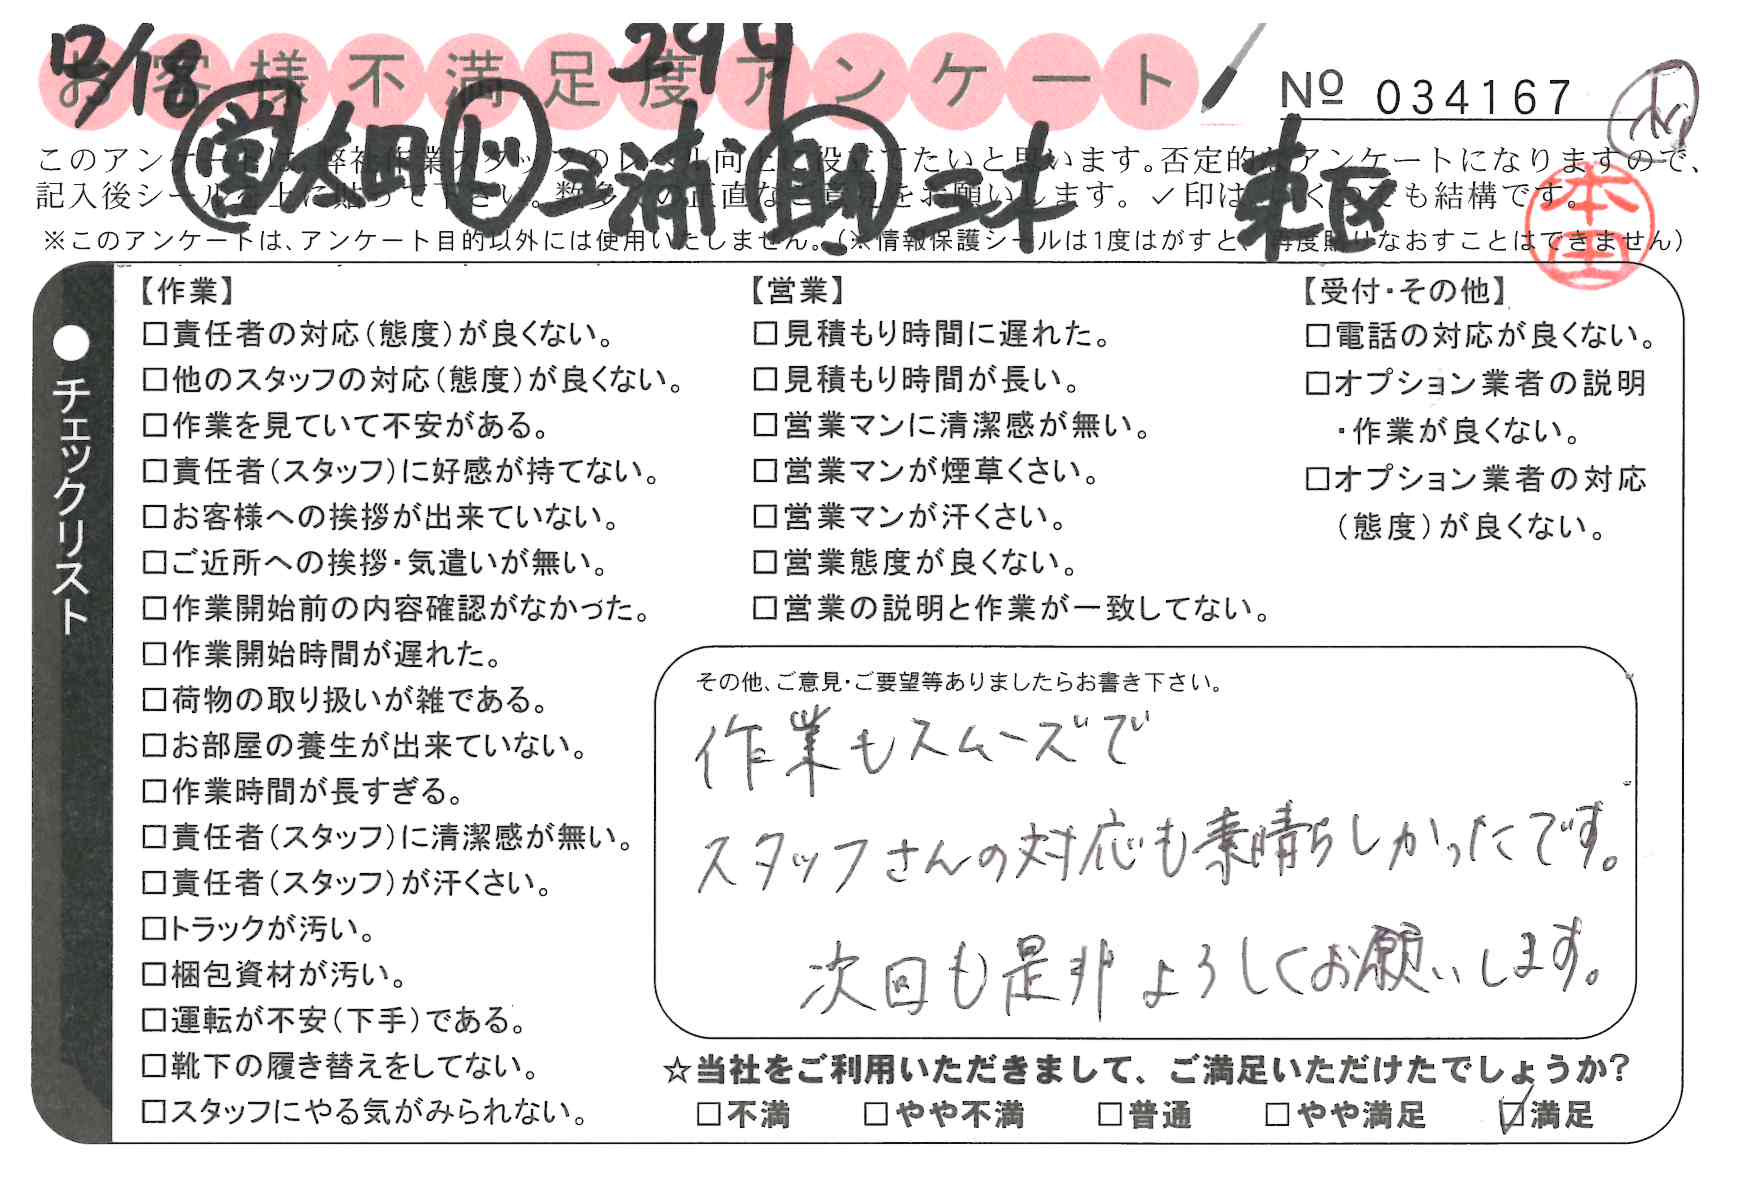 12/18
294
お客様不満足度アンケート
№ 034167
営 大町 ド 三浦 助 三木 東区
このアンケートは、弊社作業スタッフのレベル向上に役立てたいと思います。否定的なアンケートになりますので、
記入後シールを上に貼って下さい。数多くの正直なご意見をお願いします。✓印はいくつでも結構です。
※このアンケートは、アンケート目的以外には使用いたしません。(※情報保護シールは1度はがすと、再度貼りなおすことはできません)
本田
●チェックリスト
【作業】
□責任者の対応(態度)が良くない。
□他のスタッフの対応(態度)が良くない。
□作業を見ていて不安がある。
□責任者(スタッフ)に好感が持てない。
□お客様への挨拶が出来ていない。
□ご近所への挨拶・気遣いが無い。
□作業開始前の内容確認がなかった。
□作業開始時間が遅れた。
□荷物の取り扱いが雑である。
□お部屋の養生が出来ていない。
□作業時間が長すぎる。
□責任者(スタッフ)に清潔感が無い。
□責任者(スタッフ)が汗くさい。
□トラックが汚い。
□梱包資材が汚い。
□運転が不安(下手)である。
□靴下の履き替えをしてない。
□スタッフにやる気がみられない。
【営業】
□見積もり時間に遅れた。
□見積もり時間が長い。
□営業マンに清潔感が無い。
□営業マンが煙草くさい。
□営業マンが汗くさい。
□営業態度が良くない。
□営業の説明と作業が一致してない。
【受付・その他】
□電話の対応が良くない。
□オプション業者の説明
・作業が良くない。
□オプション業者の対応
(態度)が良くない。
その他、ご意見・ご要望等ありましたらお書き下さい。
作業もスムーズで
スタッフさんの対応も素晴らしかったです。
次回も是非よろしくお願いします。
☆当社をご利用いただきまして、ご満足いただけたでしょうか?
□不満 □やや不満 □普通 □やや満足 ☑満足